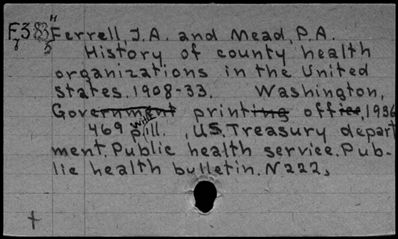 H
F383 Ferrell, J.A. and Mead, P.A.
5
History of county health
organizations in the United
states. 1908-33. Washington,
Government printing office, 1936
469 p. ill. U.S. Treasury depart
ment. Public health service. Pub-
lic health bulletin. N222,